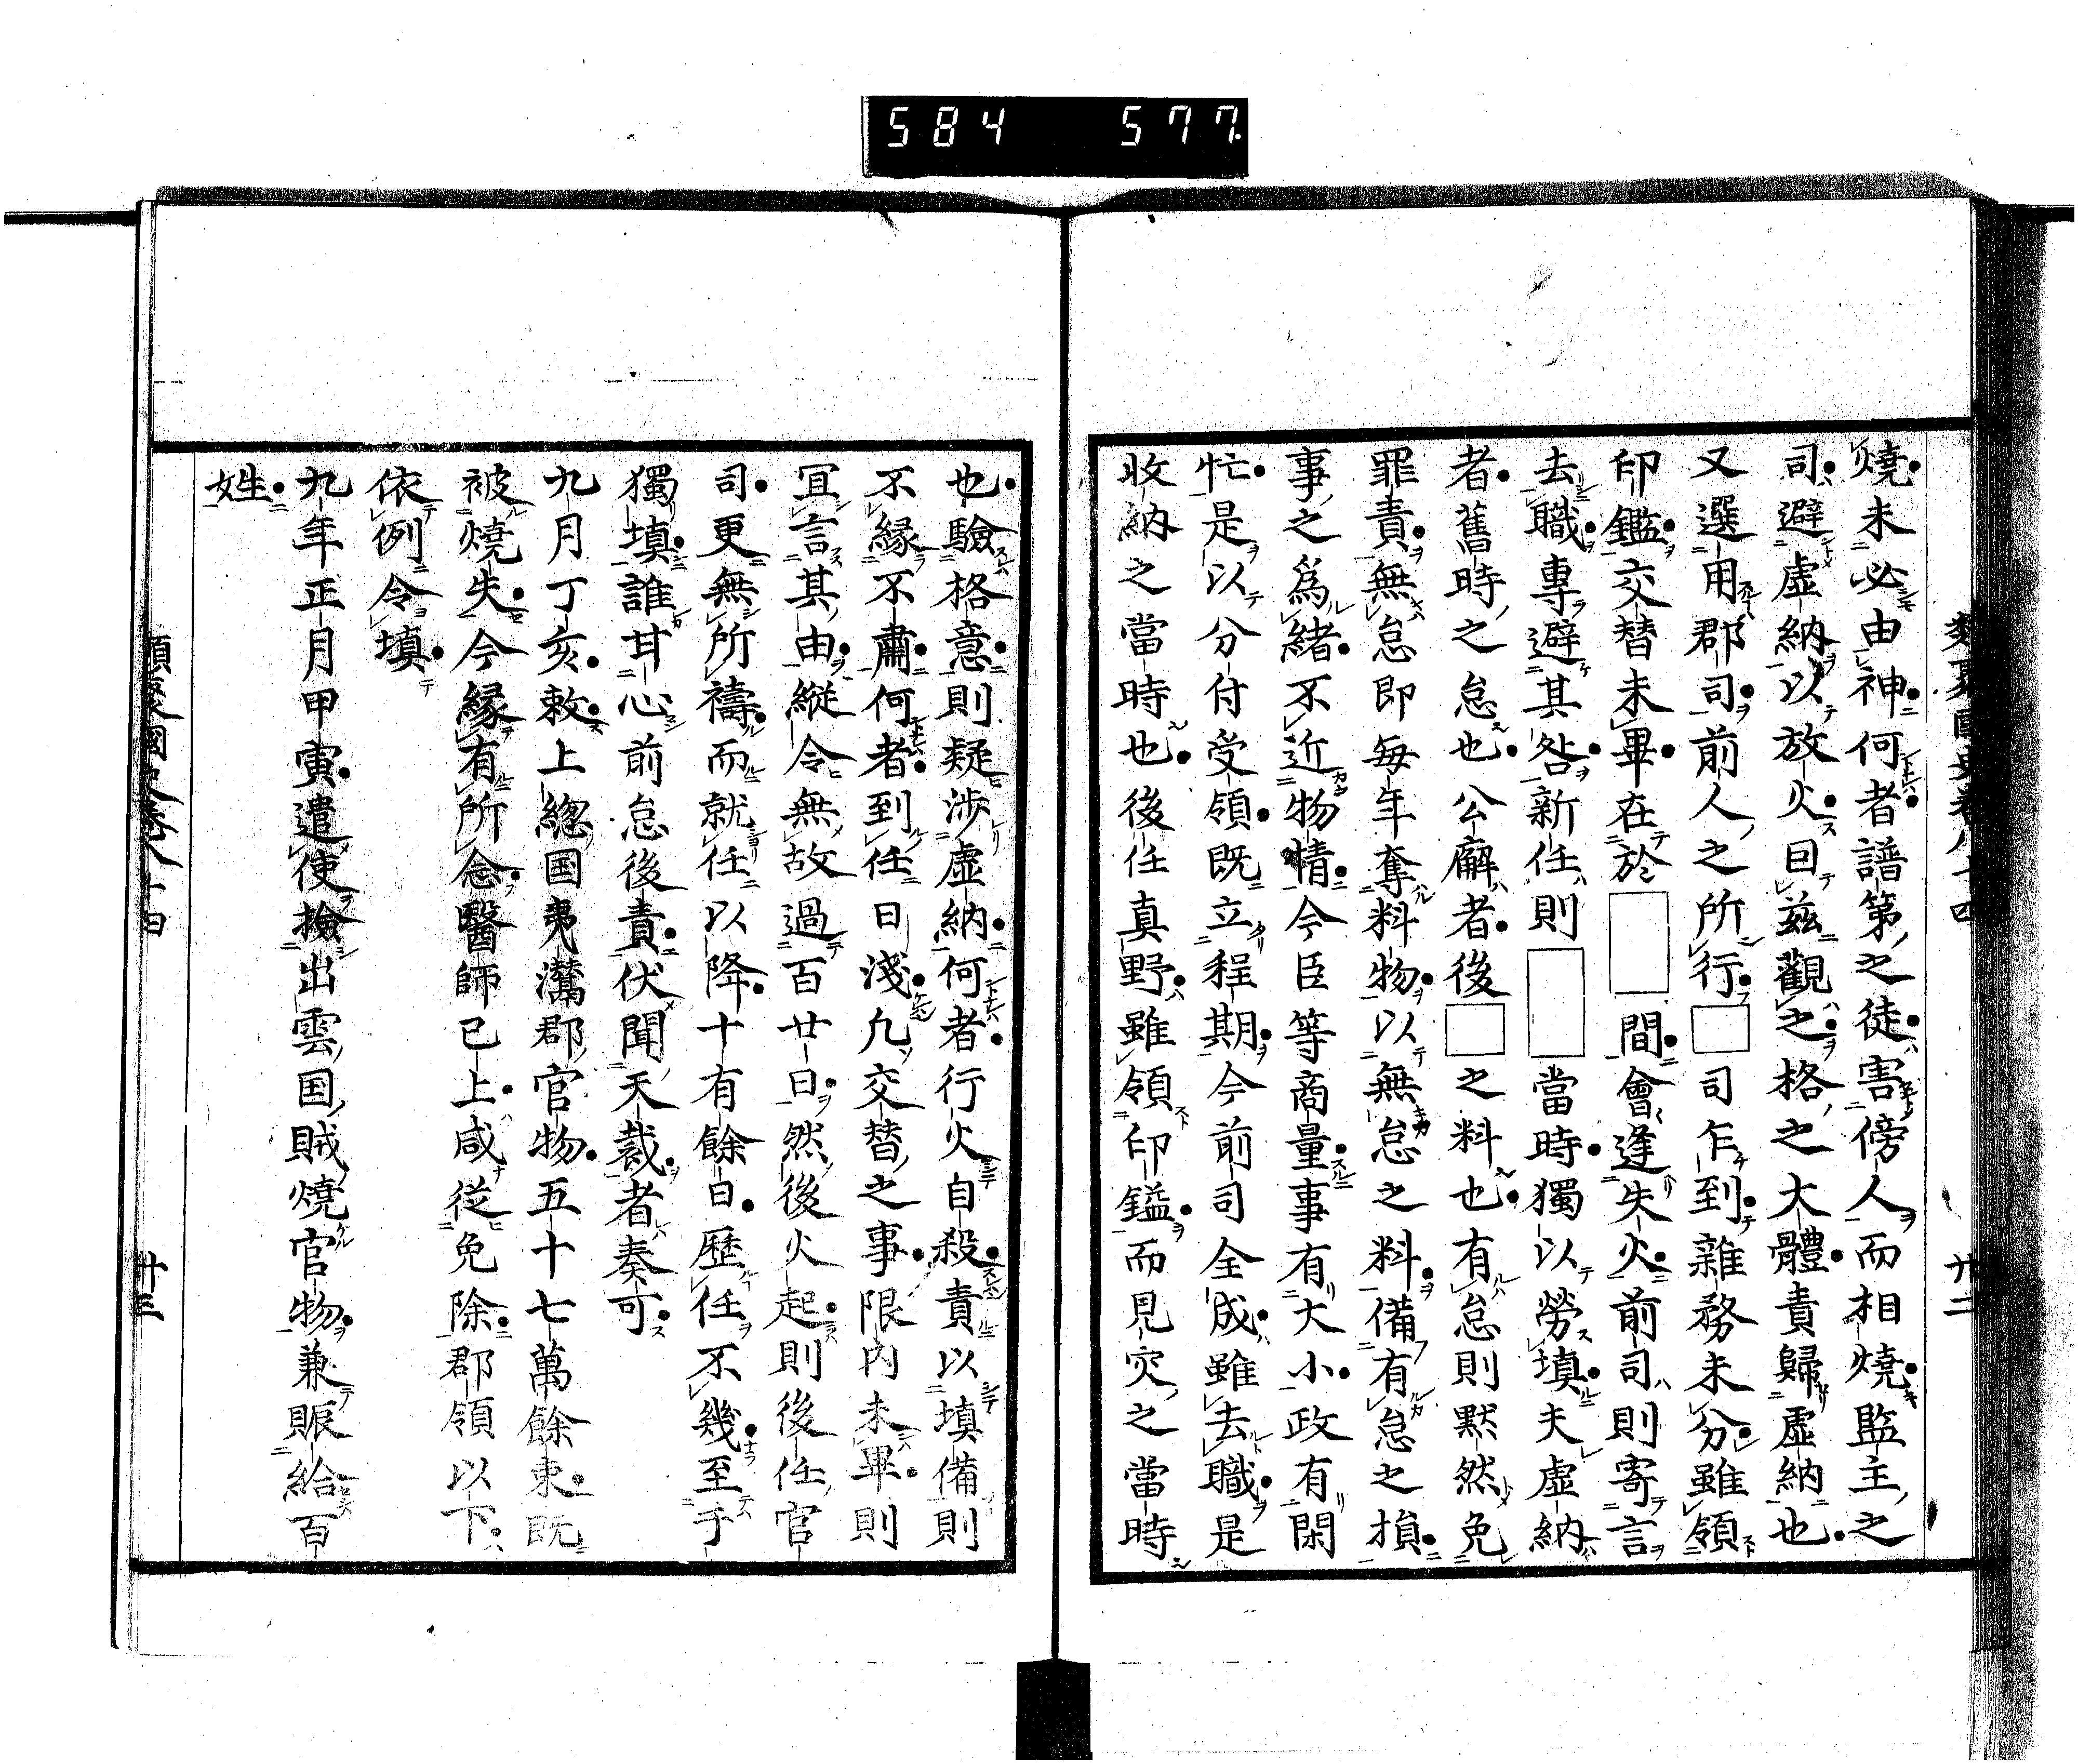 584 577
類聚國史卷八十四 廿二
燒未必由神何者譜第之徒害傍人而相燒監主之
司避虛納以放火曰茲觀之格之大體責歸虛納也
又選用郡司前人之所行□司乍到雜務未分雖領
印鑑交替未畢在於□間會逢失火前司則寄言
去職專避其咎新任則□當時獨以勞填夫虛納
者舊時之怠也公廨者後□之料也有怠則默然免
罪責無怠即每年奪料物以無怠之料備有怠之損
事之爲緒不近物情今臣等商量事有大小政有閑
忙是以分付受領既立程期今前司全成雖去職是
收納之當時也後任真野雖領印鎰而見灾之當時
也驗格意則疑涉虛納何者行火自殺責以填備則
不緣不肅何者到任日淺九交替之事限內未畢則
宜言其由縱令無故過百廿日然後火起則後任官
司更無所禱而就任以降十有餘日歷任不幾至于
獨填誰甘心前怠後責伏聞天裁者奏可
九月丁亥敕上總国夷灊郡官物五十七萬餘束既
被燒失今緣有所念醫師已上咸從免除郡領以下
依例令填
九年正月甲寅遣使撿出雲国賊燒官物兼賑給百
姓
類聚國史卷八十四 廿三